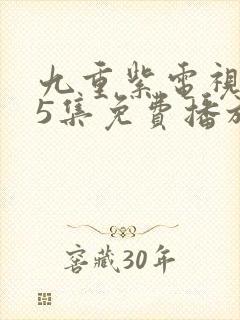 九重紫電視
5集免費播放
窖藏30年